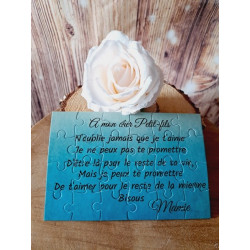 A mon cher Petit-fils
N'oublie jamais que je t'aime
Je ne peux pas te promettre
D'être là pour le reste de sa vie,
Mais je peux te promettre
De t'aimer pour le reste de la mienne
Bisous
Mamie